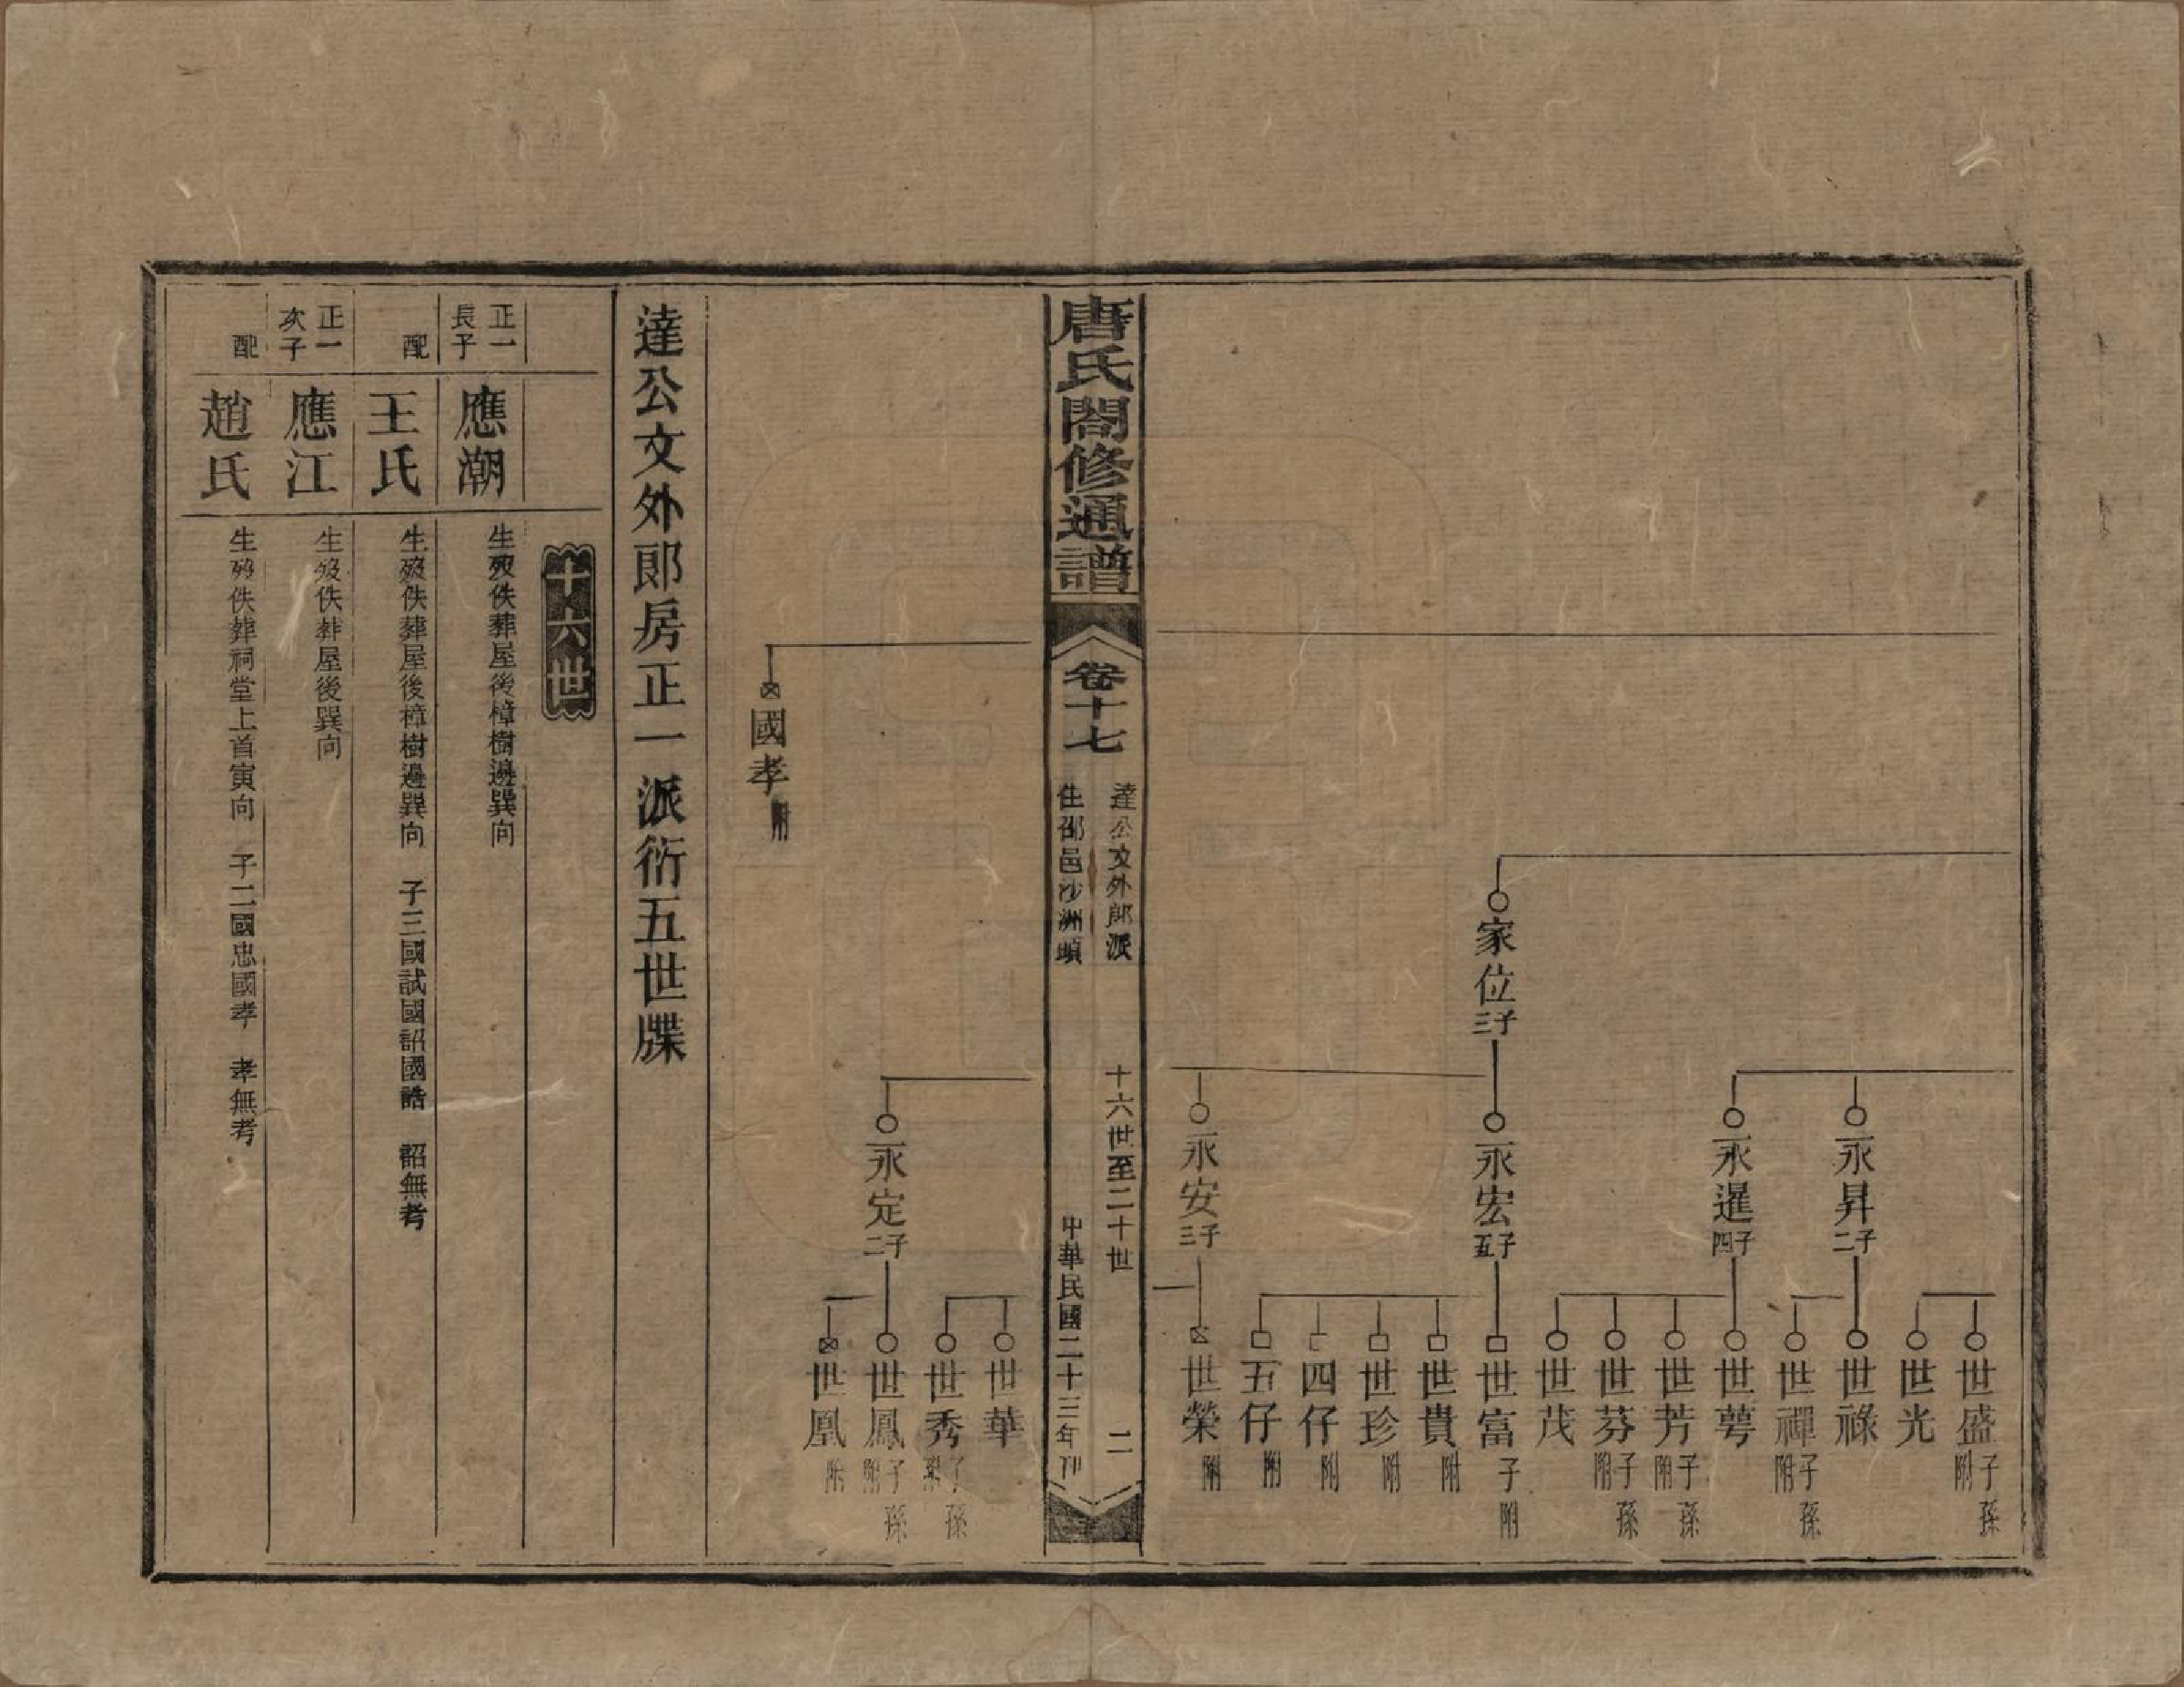 家位 三子
永昇 二子
永暹 四子
永宏 五子
永安 三子
世盛 子附 孫
世光
世祿
世禪 子附 孫
世萼
世芳 子附 孫
世芬 子附 孫
世茂
世富 子附
世貴 附
世珍 附
四仔 附
五仔 附
世榮 附
唐氏闔修通譜
卷十七
達公文外郎派
住邵邑沙洲頭
十六世至二十世
二
中華民國二十三年刊
國孝 附
永定 二子
世華
世秀 孫
世鳳 子附 孫
世凰 附
達公文外郎房正一派衍五世牒
十六世
正一長子 應潮 生歿佚葬屋後樟樹邊巽向
配 王氏 生歿佚葬屋後樟樹邊巽向 子三國試國詔國誥 詔無考
正一次子 應江 生歿佚葬屋後巽向
配 趙氏 生歿佚葬祠堂上首寅向 子二國忠國孝 孝無考